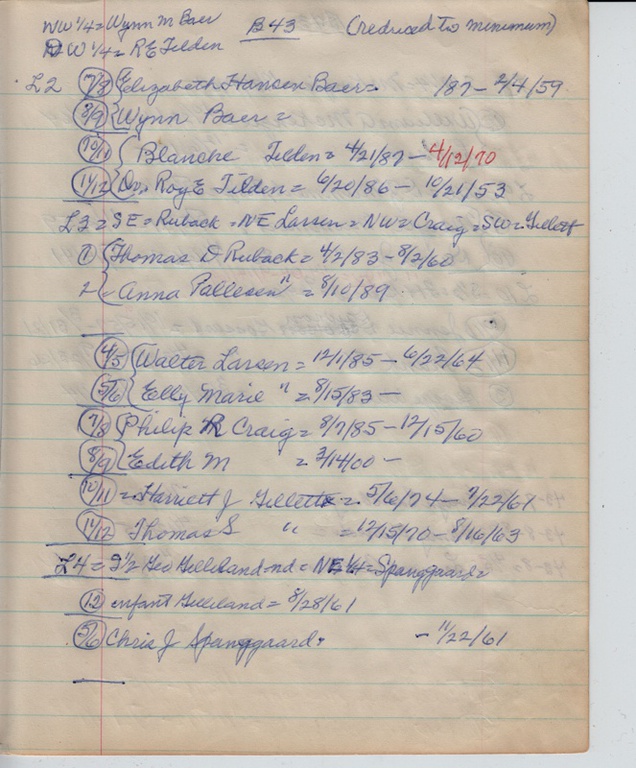 NW 1/4 = Wynn M Baer B43 (reduced to minimum)
NW 1/4 = R E Tilden
L2 7/8 Elizabeth Hansen Baer = /87 - 2/4/59
8/9 Wynn Baer =
10/11 Blanche Tilden = 4/21/87 - 4/12/70
11/12 Dr. Roy E Tilden = 6/20/86 - 10/21/53
L3 = SE = Ruback = NE Larsen = NW = Craig = SW = Gillett
1 Thomas D Ruback = 4/2/83 - 8/2/60
2 Anna Pallesen " = 8/10/89
4/5 Walter Larsen = 12/1/85 - 6/22/64
5/6 Elly Marie " = 8/15/83 -
7/8 Philip R Craig = 8/7/85 - 12/15/60
8/9 Edith M = 3/14/00 -
10/11 = Harriett J Gillette = 5/6/74 - 7/22/67
11/12 Thomas S " = 12/15/70 - 8/16/63
L4 = S 1/2 Geo Gilliland - nd = NE 1/4 = Spanggaard =
12 infant Gilliland = 8/28/61
5/6 Chris J Spanggaard - 11/22/61